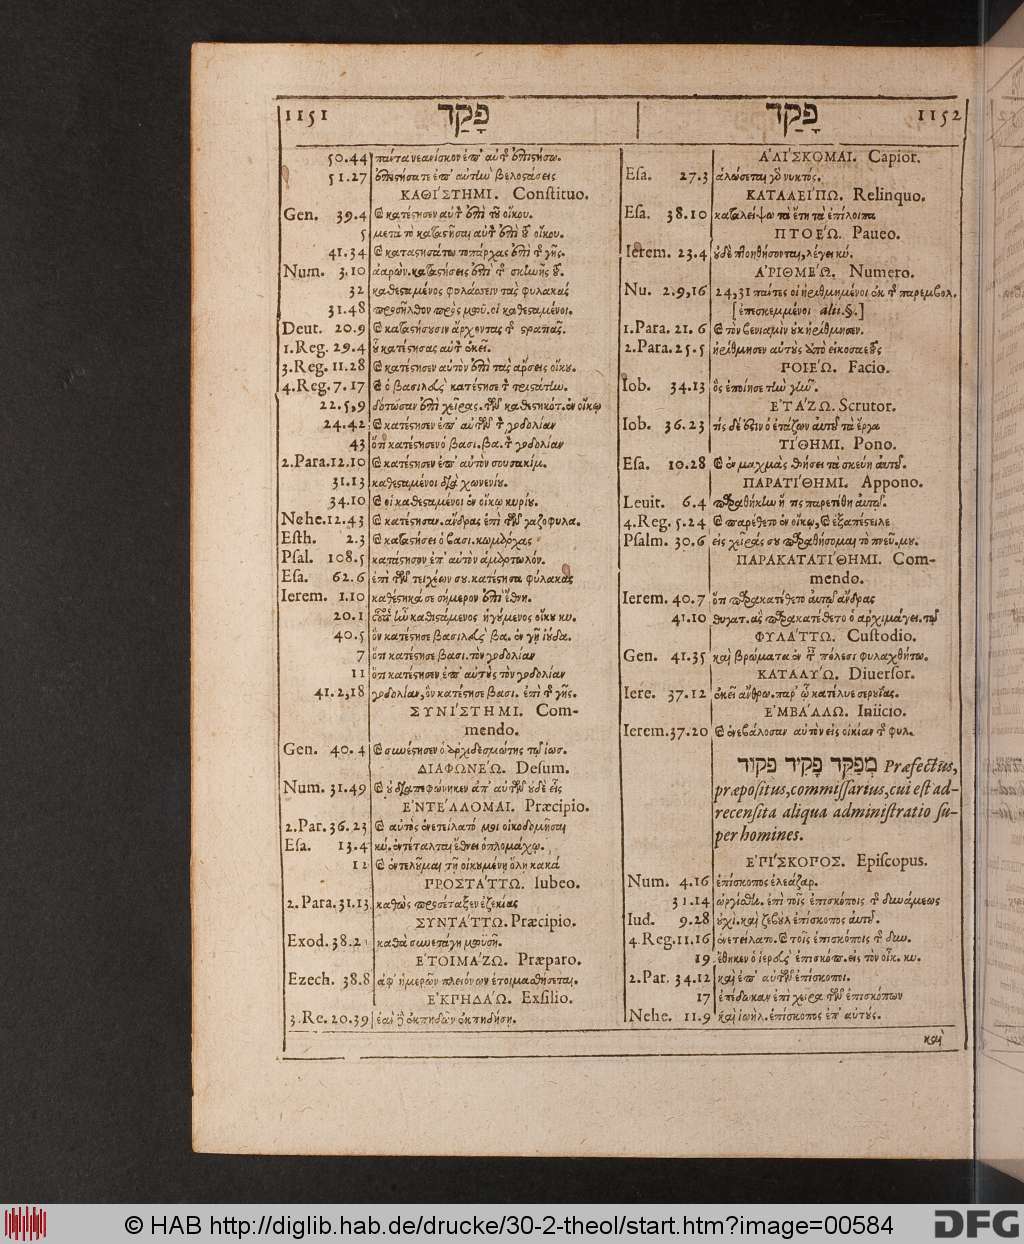 1151 פָּקַד
50.44 πάντα νεανίσκον ἐπ' αὐτ ἐπιστήσω.
51.27 ἐπιστήσατε ἐπ' αὐτὴν βελοστάσεις
ΚΑΘΙΣΤΗΜΙ. Constituo.
Gen. 39.4 κατέστησεν αὐτ ἐπὶ τοῦ οἴκου.
5 μετὰ τὸ καταστῆσαι αὐτ ἐπὶ τοῦ οἴκου.
41.34 καταστησάτω τοπάρχας ἐπὶ τῆς γῆς.
Num. 3.10 ἀαρὼν. καταστήσεις ἐπὶ τῆς σκηνῆς
32 καθεσταμένος φυλάσσειν τὰς φυλακάς
31.48 προσῆλθον πρὸς μωϋ. οἱ καθεσταμένοι.
Deut. 20.9 καταστήσουσιν ἄρχοντας τῆς στρατιᾶς.
1.Reg. 29.4 οὗ κατέστησας αὐτ ἐκεῖ.
3.Reg. 11.28 κατέστησεν αὐτὸν ἐπὶ τὰς ἄρσεις οἴκου.
4.Reg. 7.17 ὁ βασιλεὺς κατέστησε τ τριστάτην.
22.5,9 δότωσαν ἐπὶ χεῖρας. τῶν καθεστηκότ. ἐν οἴκῳ
24.42 κατέστησεν ἐπ' αὐτῶν τ γοδολίαν
43 ὅτι κατέστησεν ὁ βασι. βα. τ γοδολίαν
2.Para. 12.10 κατέστησεν ἐπ' αὐτὸν σουσακίμ.
31.13 καθεσταμένοι διὰ χωνενίου.
34.10 οἱ καθεσταμένοι ἐν οἴκῳ κυρίου.
Nehe. 12.43 κατέστησαν. ἄνδρας ἐπὶ τῶν γαζοφυλα.
Esth. 2.3 καταστήσει ὁ βασι. κωμάρχας
Psal. 108.5 κατάστησον ἐπ' αὐτὸν ἁμαρτωλόν.
Esa. 62.6 ἐπὶ τῶν τειχέων σου. κατέστησα φύλακας
Ierem. 1.10 καθέστηκά σε σήμερον ἐπὶ ἔθνη.
20.1 ἦν καθεσταμένος ἡγούμενος οἴκου κυ.
40.5 ὃν κατέστησε βασιλεὺς βα. ἐν γῇ ἰούδα.
7 ὅτι κατέστησε βασι. τὸν γοδολίαν
11 ὅτι κατέστησεν ἐπ' αὐτοὺς τὸν γοδολίαν
41.2,18 γοδολίαν, ὃν κατέστησε βασι. ἐπὶ τῆς γῆς.
ΣΥΝΙΣΤΗΜΙ. Com-
mendo.
Gen. 40.4 συνέστησεν ὁ ἀρχιδεσμώτης τῷ ἰωσ.
ΔΙΑΦΩΝΕΩ. Desum.
Num. 31.49 οὐ διαπεφώνηκεν ἀπ' αὐτῶν οὐδὲ εἷς
ἘΝΤΕΛΛΟΜΑΙ. Præcipio.
2.Par. 36.23 αὐτὸς ἐνετείλατό μοι οἰκοδομῆσαι
Esa. 13.4 κύ. ἐντέταλται ἔθνει ὁπλομάχῳ.
12 ἐντελοῦμαι τῇ οἰκουμένῃ ὅλῃ κακά
ΠΡΟΣΤΑΤΤΩ. Iubeo.
2.Para. 31.13 καθὼς προσέταξεν ἐζεκίας
ΣΥΝΤΑΤΤΩ. Præcipio.
Exod. 38.2 καθὰ συνετάγη μωϋσῇ.
ἙΤΟΙΜΑΖΩ. Præparo.
Ezech. 38.8 ἀφ' ἡμερῶν πλειόνων ἑτοιμασθήσεται.
ἘΚΠΗΔΑΩ. Exsilio.
3.Re. 20.39 ἐὰν δὲ ἐκπηδῶν ἐκπηδήσῃ.
פָּקַד 1152
ἉΛΙΣΚΟΜΑΙ. Capior.
Esa. 27.3 ἁλώσεται γὰρ νυκτός.
ΚΑΤΑΛΕΙΠΩ. Relinquo.
Esa. 38.10 καταλείψω τὰ ἔτη τὰ ἐπίλοιπα
ΠΤΟΕΩ. Paueo.
Ierem. 23.4 οὐδὲ πτοηθήσονται, λέγει κύ.
ἈΡΙΘΜΕΩ. Numero.
Nu. 2.9,16 24,31 πάντες οἱ ἠριθμημένοι ἐκ τῆς παρεμβολ.
[ἐπεσκεμμένοι alii.§.]
1.Para. 21.6 τὸν βενιαμὶν οὐκ ἠρίθμησεν.
2.Para. 25.5 ἠρίθμησεν αὐτοὺς ἀπὸ εἰκοσαετοῦς
ΠΟΙΕΩ. Facio.
Iob. 34.13 ὃς ἐποίησε τὴν γῆν.
ἘΤΑΖΩ. Scrutor.
Iob. 36.23 τίς δέ ἐστιν ὁ ἐτάζων αὐτοῦ τὰ ἔργα
ΤΙΘΗΜΙ. Pono.
Esa. 10.28 ἐν μαχμὰς θήσει τὰ σκεύη αὐτοῦ.
ΠΑΡΑΤΙΘΗΜΙ. Appono.
Leuit. 6.4 παραθήκην ἥτις παρετέθη αὐτῷ.
4.Reg. 5.24 παρέθετο ἐν οἴκῳ, ἐξαπέστειλε
Psalm. 30.6 εἰς χεῖράς σου παραθήσομαι τὸ πνεῦ. μου.
ΠΑΡΑΚΑΤΑΤΙΘΗΜΙ. Com-
mendo.
Ierem. 40.7 ὅτι παρακατέθετο αὐτῷ ἄνδρας
41.10 θυγατ. ἃς παρακατέθετο ὁ ἀρχιμάγει. τῷ
ΦΥΛΑΤΤΩ. Custodio.
Gen. 41.35 καὶ βρώματα ἐν τ πόλεσι φυλαχθήτω.
ΚΑΤΑΛΥΩ. Diuersor.
Iere. 37.12 ἐκεῖ ἄνθρω. παρ' ᾧ κατέλυε σερουΐας.
ἘΜΒΑΛΛΩ. Iniicio.
Ierem. 37.20 ἐνεβάλοσαν αὐτὸν εἰς οἰκίαν τῆς φυλ.
מִפְקָד פָּקִיד פקוד Præfectus,
præpositus, commissarius, cui est ad-
recensita aliqua administratio su-
per homines.
ἘΠΙΣΚΟΠΟΣ. Episcopus.
Num. 4.16 ἐπίσκοπος ἐλεάζαρ.
31.14 ὠργίσθη. ἐπὶ τοῖς ἐπισκόποις τῆς δυνάμεως
Iud. 9.28 οὐχὶ. καὶ ζεβοὺλ ἐπίσκοπος αὐτοῦ.
4.Reg. 11.16 ἐνετείλατο. τοῖς ἐπισκόποις τῆς δυν.
19 ἔθηκεν ὁ ἱερεὺς ἐπισκόπ. εἰς τὸν οἶκ. κυ.
2.Par. 34.12 καὶ ἐπ' αὐτῶν ἐπίσκοποι.
17 ἐπέδωκαν ἐπὶ χεῖρα τῶν ἐπισκόπων
Nehe. 11.9 καὶ ἰωήλ. ἐπίσκοπος ἐπ' αὐτούς.
καὶ
© HAB http://diglib.hab.de/drucke/30-2-theol/start.htm?image=00584
DFG